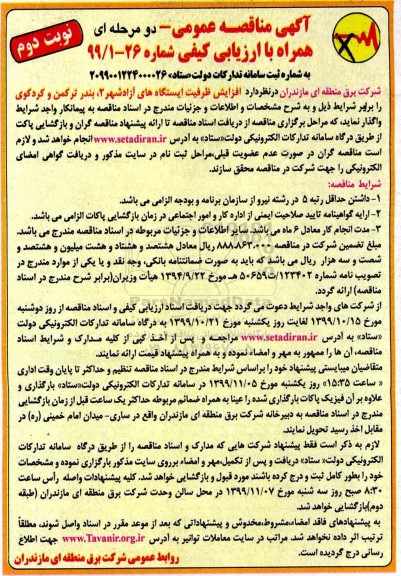 نوبت دوم
آگهی مناقصه عمومی- دو مرحله ای
همراه با ارزیابی کیفی شماره ۲۶-۹۹/۱
به شماره ثبت سامانه تدارکات دولت«ستاد» ۲۰۹۹۰۰۱۲۲۴۰۰۰۰۲۶
شرکت برق منطقه ای مازندران درنظردارد افزایش ظرفیت ایستگاه های آزادشهر۲، بندر ترکمن و کردکوی
را برابر شرایط ذیل و به شرح مشخصات و اطلاعات و جزئیات مندرج در اسناد مناقصه به پیمانکار واجد شرایط
واگذار نماید، که مراحل برگزاری مناقصه از دریافت اسناد مناقصه تا ارائه پیشنهاد مناقصه گران و بازگشایی پاکت
از طریق درگاه سامانه تدارکات الکترونیکی دولت«ستاد» به آدرس www.setadiran.ir انجام خواهد شد و لازم
است مناقصه گران در صورت عدم عضویت قبلی،مراحل ثبت نام در سایت مذکور و دریافت گواهی امضای
الکترونیکی را جهت شرکت در مناقصه محقق سازند.
شرایط مناقصه:
۱-داشتن حداقل رتبه ۵ در رشته نیرو از سازمان برنامه و بودجه الزامی می باشد.
۲- ارایه گواهینامه تایید صلاحیت ایمنی از اداره کار و امور اجتماعی در زمان بازگشایی پاکات الزامی می باشد.
۳- مدت انجام کار معادل ۶ ماه می باشد.سایر اطلاعات و جزئیات مربوطه در اسناد مناقصه مندرج می باشد.
مبلغ تضمین شرکت در مناقصه ۸۸۸.۸۶۳.۰۰۰ ریال معادل هشتصد و هشتاد و هشت میلیون و هشتصد و
شصت و سه هزار ریال می باشد که باید به صورت ضمانتنامه بانکی، وجه نقد و یا یکی از موارد مندرج در
تصویب نامه شماره ۱۲۳۴۰۲/ت۵۰۶۵۹ هـ مورخ ۱۳۹۴/۹/۲۲ هیأت وزیران(برابر شرح مندرج در اسناد
مناقصه) ارائه گردد.
از شرکت های واجد شرایط دعوت می گردد جهت دریافت اسناد ارزیابی کیفی و اسناد مناقصه از روز دوشنبه
مورخ ۱۳۹۹/۱۰/۱۵ لغایت روز یکشنبه مورخ ۱۳۹۹/۱۰/۲۱ به درگاه سامانه تدارکات الکترونیکی دولت
«ستاد» به آدرس www.setadiran.ir مراجعه و پس از اخذ کپی از کلیه مدارک و شرایط اسناد
مناقصه، آن ها را ممهور به مهر و امضاء نموده و به همراه پیشنهاد قیمت ارائه نمایند.
متقاضیان میبایستی پیشنهاد خود را براساس شرایط مندرج در اسناد مناقصه تنظیم و حداکثر تا پایان وقت اداری
« ساعت ۱۵:۳۵» روز یکشنبه مورخ ۱۳۹۹/۱۱/۰۵ در سامانه تدارکات الکترونیکی دولت«ستاد» بارگذاری و
علاوه بر آن فیزیک پاکات بارگذاری شده را عینا به همراه ضمائم مربوطه حداکثر یک ساعت قبل از زمان بازگشایی
مندرج در اسناد مناقصه به دبیرخانه شرکت برق منطقه ای مازندران واقع در ساری- میدان امام خمینی (ره) در
مقابل اخذ رسید تحویل نمایند.
لازم به ذکر است فقط پیشنهاد شرکت هایی که مدارک و اسناد مناقصه را از طریق درگاه سامانه تدارکات
الکترونیکی دولت« ستاد» دریافت و پس از تکمیل،مهر و امضاء برروی سایت مذکور بارگزاری نموده و مشخصات
خود را بطور کامل ثبت و درج کرده باشند مورد قبول و بازگشایی خواهد شد. کلیه پیشنهادات واصله رأس ساعت
۸:۳۰ صبح روز سه شنبه مورخ ۱۳۹۹/۱۱/۰۷ در محل سالن وحدت شرکت برق منطقه ای مازندران (طبقه
دوم)بازگشایی خواهد شد.
به پیشنهادهای فاقد امضاء،مشروط،مخدوش و پیشنهاداتی که بعد از موعد مقرر در اسناد واصل شوند، مطلقاً
ترتیب اثر داده نخواهد شد. مراتب در سایت معاملات توانیر به آدرس www.Tavanir.org.ir جهت اطلاع
رسانی درج گردیده است.
روابط عمومی شرکت برق منطقه ای مازندران